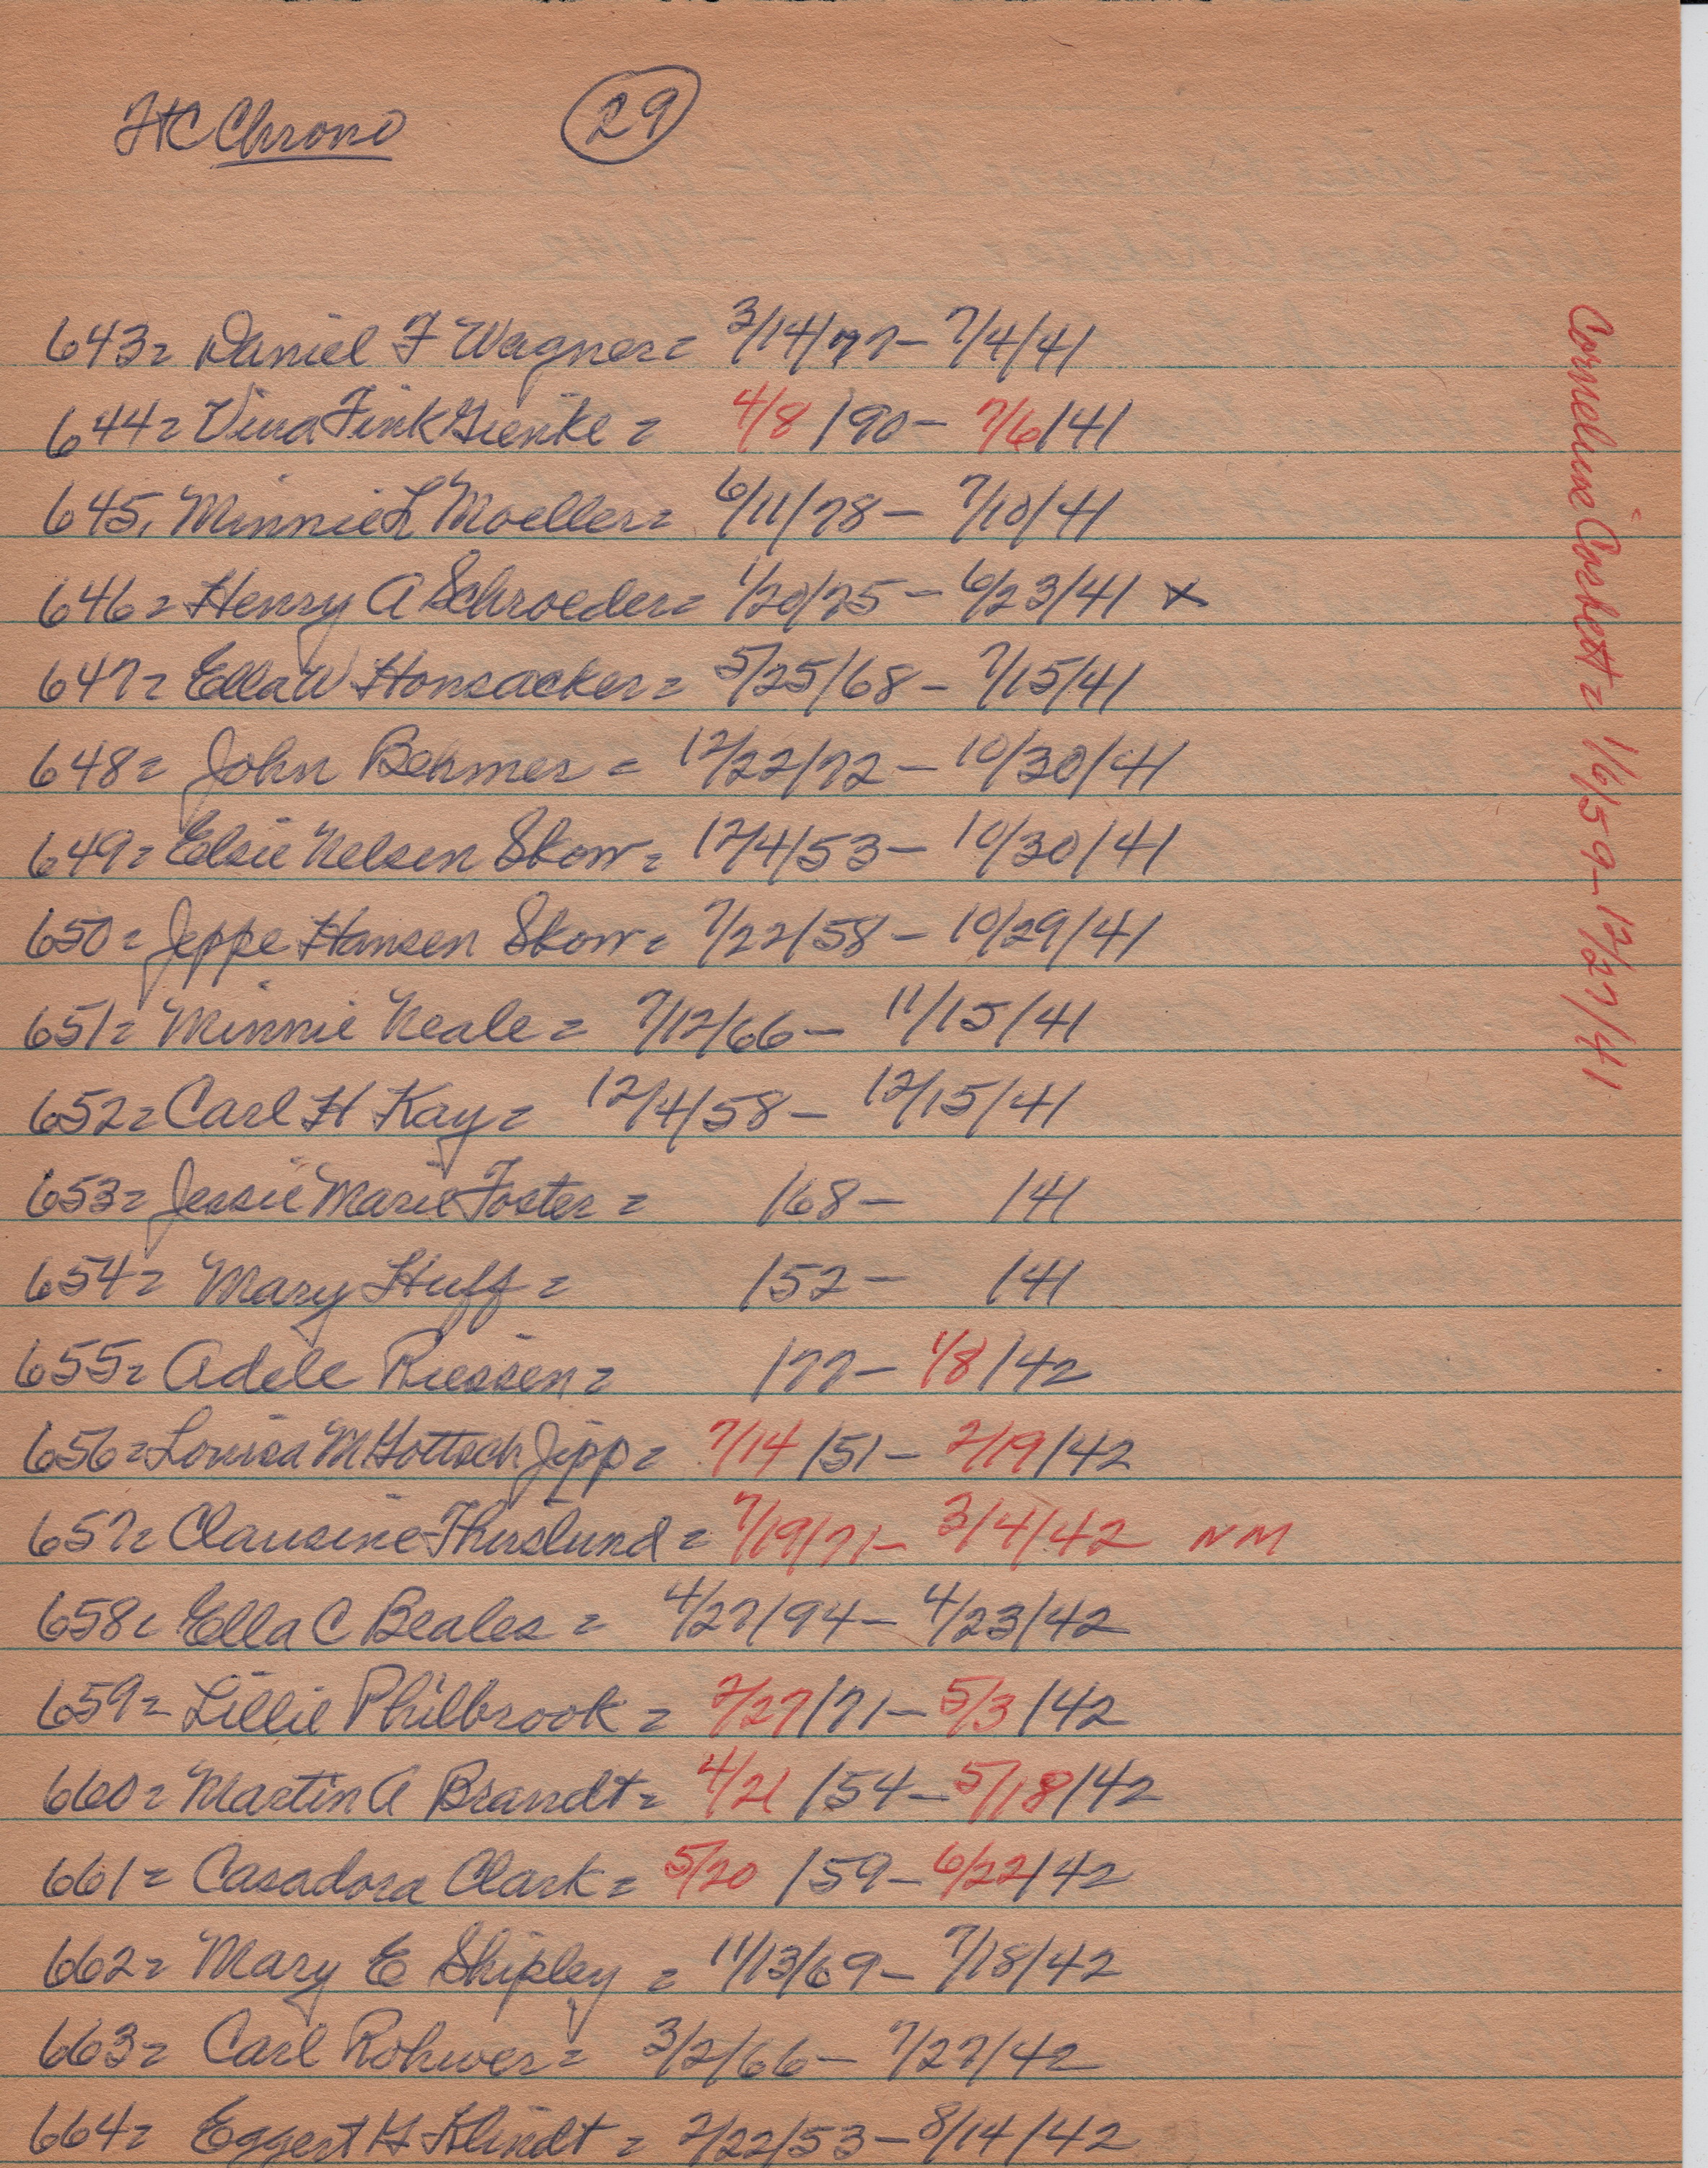 HC Chrono 29
643= Daniel F Wagner= 3/14/77- 7/4/41
644= Vina Fink Gienke = 4/8/90- 7/6/41
645, Minnie L Moeller= 6/11/78- 7/10/41
646= Henry A Schroeder= 1/20/75- 6/23/41 x
647= Ella W Honsacker= 5/25/68- 7/15/41
648= John Behmer = 12/22/72- 10/30/41
649= Elsie Nelsen Skow= 12/4/53- 10/30/41
650= Jeppe Hansen Skow= 7/22/58- 10/29/41
651= Minnie Neale= 7/12/66- 11/15/41
652= Carl H Kay= 12/4/58- 12/15/41
653= Jessie Marie Foster = /68- /41
654= Mary Huff = /52- /41
655= Adele Riessen= /77- 1/8/42
656= Louisa M Gottsch Jipp= 7/14/51- 2/19/42
657= Clausine Thuslund= 7/19/71- 3/4/42 NM
658= Ella C Beales = 4/27/94- 4/23/42
659= Lillie Philbrook = 2/27/71- 5/3/42
660= Martin A Brandt= 4/21/54- 5/18/42
661= Casadora Clark= 5/20/59- 6/22/42
662= Mary E Shipley = 11/13/69- 7/18/42
663= Carl Rohwer= 3/2/66- 7/27/42
664= Eggert H Klindt = 2/22/53- 8/14/42
Corneluse Corbett= 1/6/59- 12/27/41